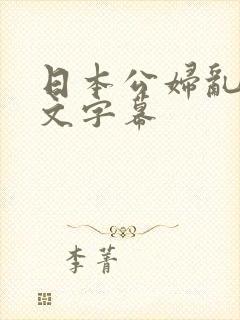 日本公婦亂
文字幕
李菁